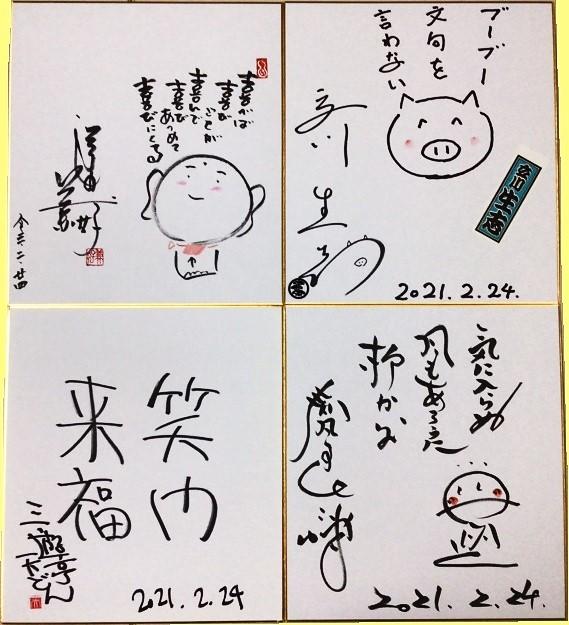 喜べば
喜びが
喜んで
喜びあつめて
喜びにくる
令三.二.廿四
ブーブー
文句を
言わない
立川
生志
立川生志
2021.2.24.
笑門
来福
三遊亭
2021.2.24
気に入らぬ
風もあろうに
柳かな
2021.2.24.